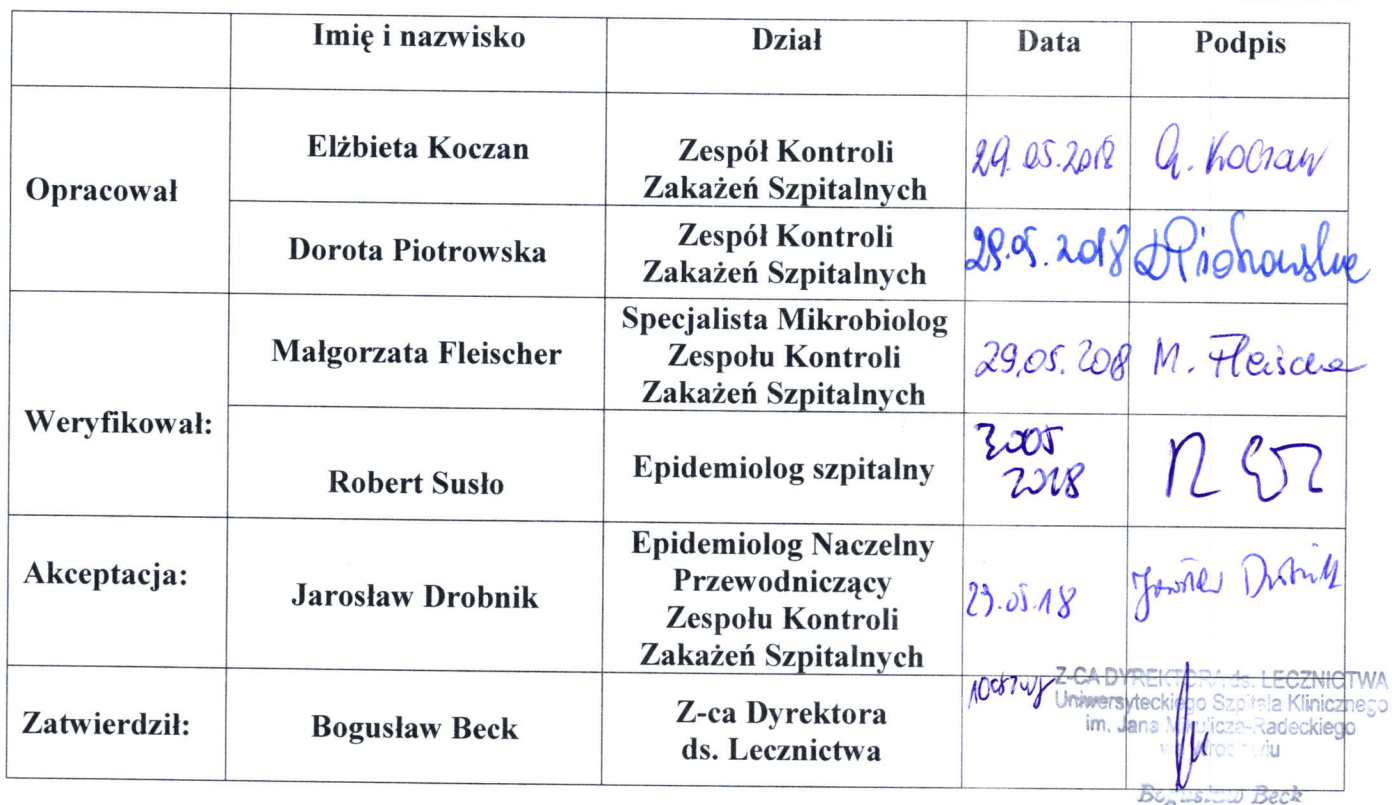 Imię i nazwisko Dział Data Podpis
Opracował
Elżbieta Koczan
Zespół Kontroli
Zakażeń Szpitalnych
29.05.2018
Koczan
Dorota Piotrowska
Zespół Kontroli
Zakażeń Szpitalnych
29.05.2018
DPiotrowska
Weryfikował:
Małgorzata Fleischer
Specjalista Mikrobiolog
Zespołu Kontroli
Zakażeń Szpitalnych
29.05.2018
M. Fleischer
Robert Susło
Epidemiolog szpitalny
3005
2018
Akceptacja:
Jarosław Drobnik
Epidemiolog Naczelny
Przewodniczący
Zespołu Kontroli
Zakażeń Szpitalnych
29.05.18
Jarosław Drobnik
Zatwierdził:
Bogusław Beck
Z-ca Dyrektora
ds. Lecznictwa
Z-CA DYREKTORA ds. LECZNICTWA
Uniwersyteckiego Szpitala Klinicznego
im. Jana Mikulicza-Radeckiego
we Wrocławiu
Bogusław Beck